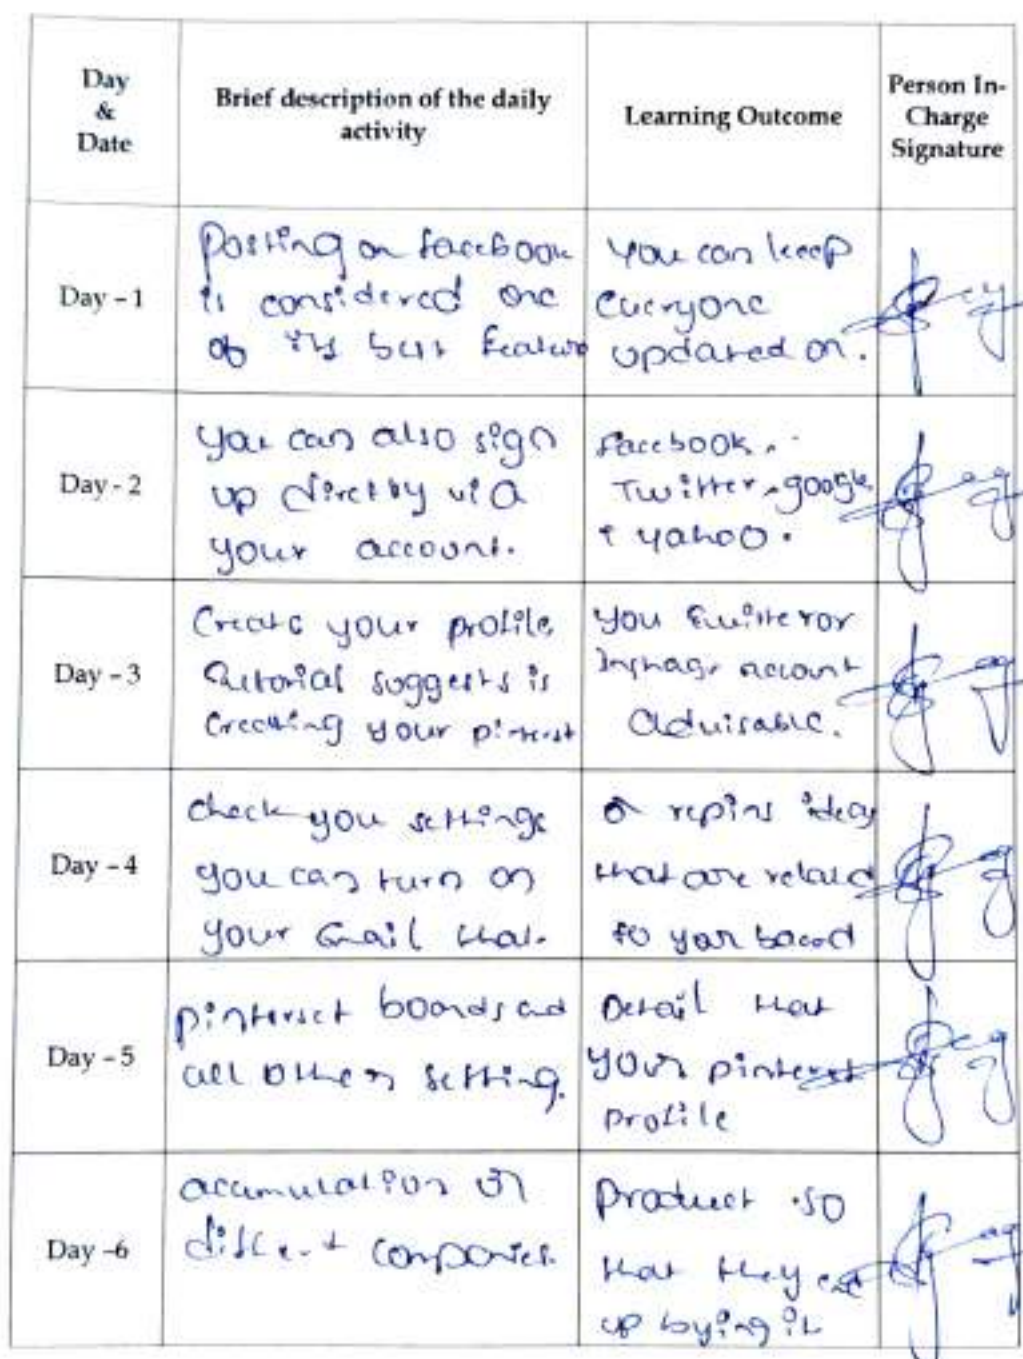 Day
&
Date
Brief description of the daily
activity
Learning Outcome
Person In-
Charge
Signature
Day - 1
Posting on facebook
is considered one
of its best feature
you can keep
everyone
updated on.
Day - 2
you can also sign
up directly via
your account.
facebook,
Twitter, google
& yahoo.
Day - 3
Create your profile
suggests is
Creating your pinterest
you
account
advisable.
Day - 4
check you settings
you can turn on
your Gmail that.
repins ideas
that are related
to your
Day - 5
pinterset boards and
all other setting.
Detail that
your pinterest
profile
Day -6
accumulation of
different companies.
Product so
that they end
up bying it